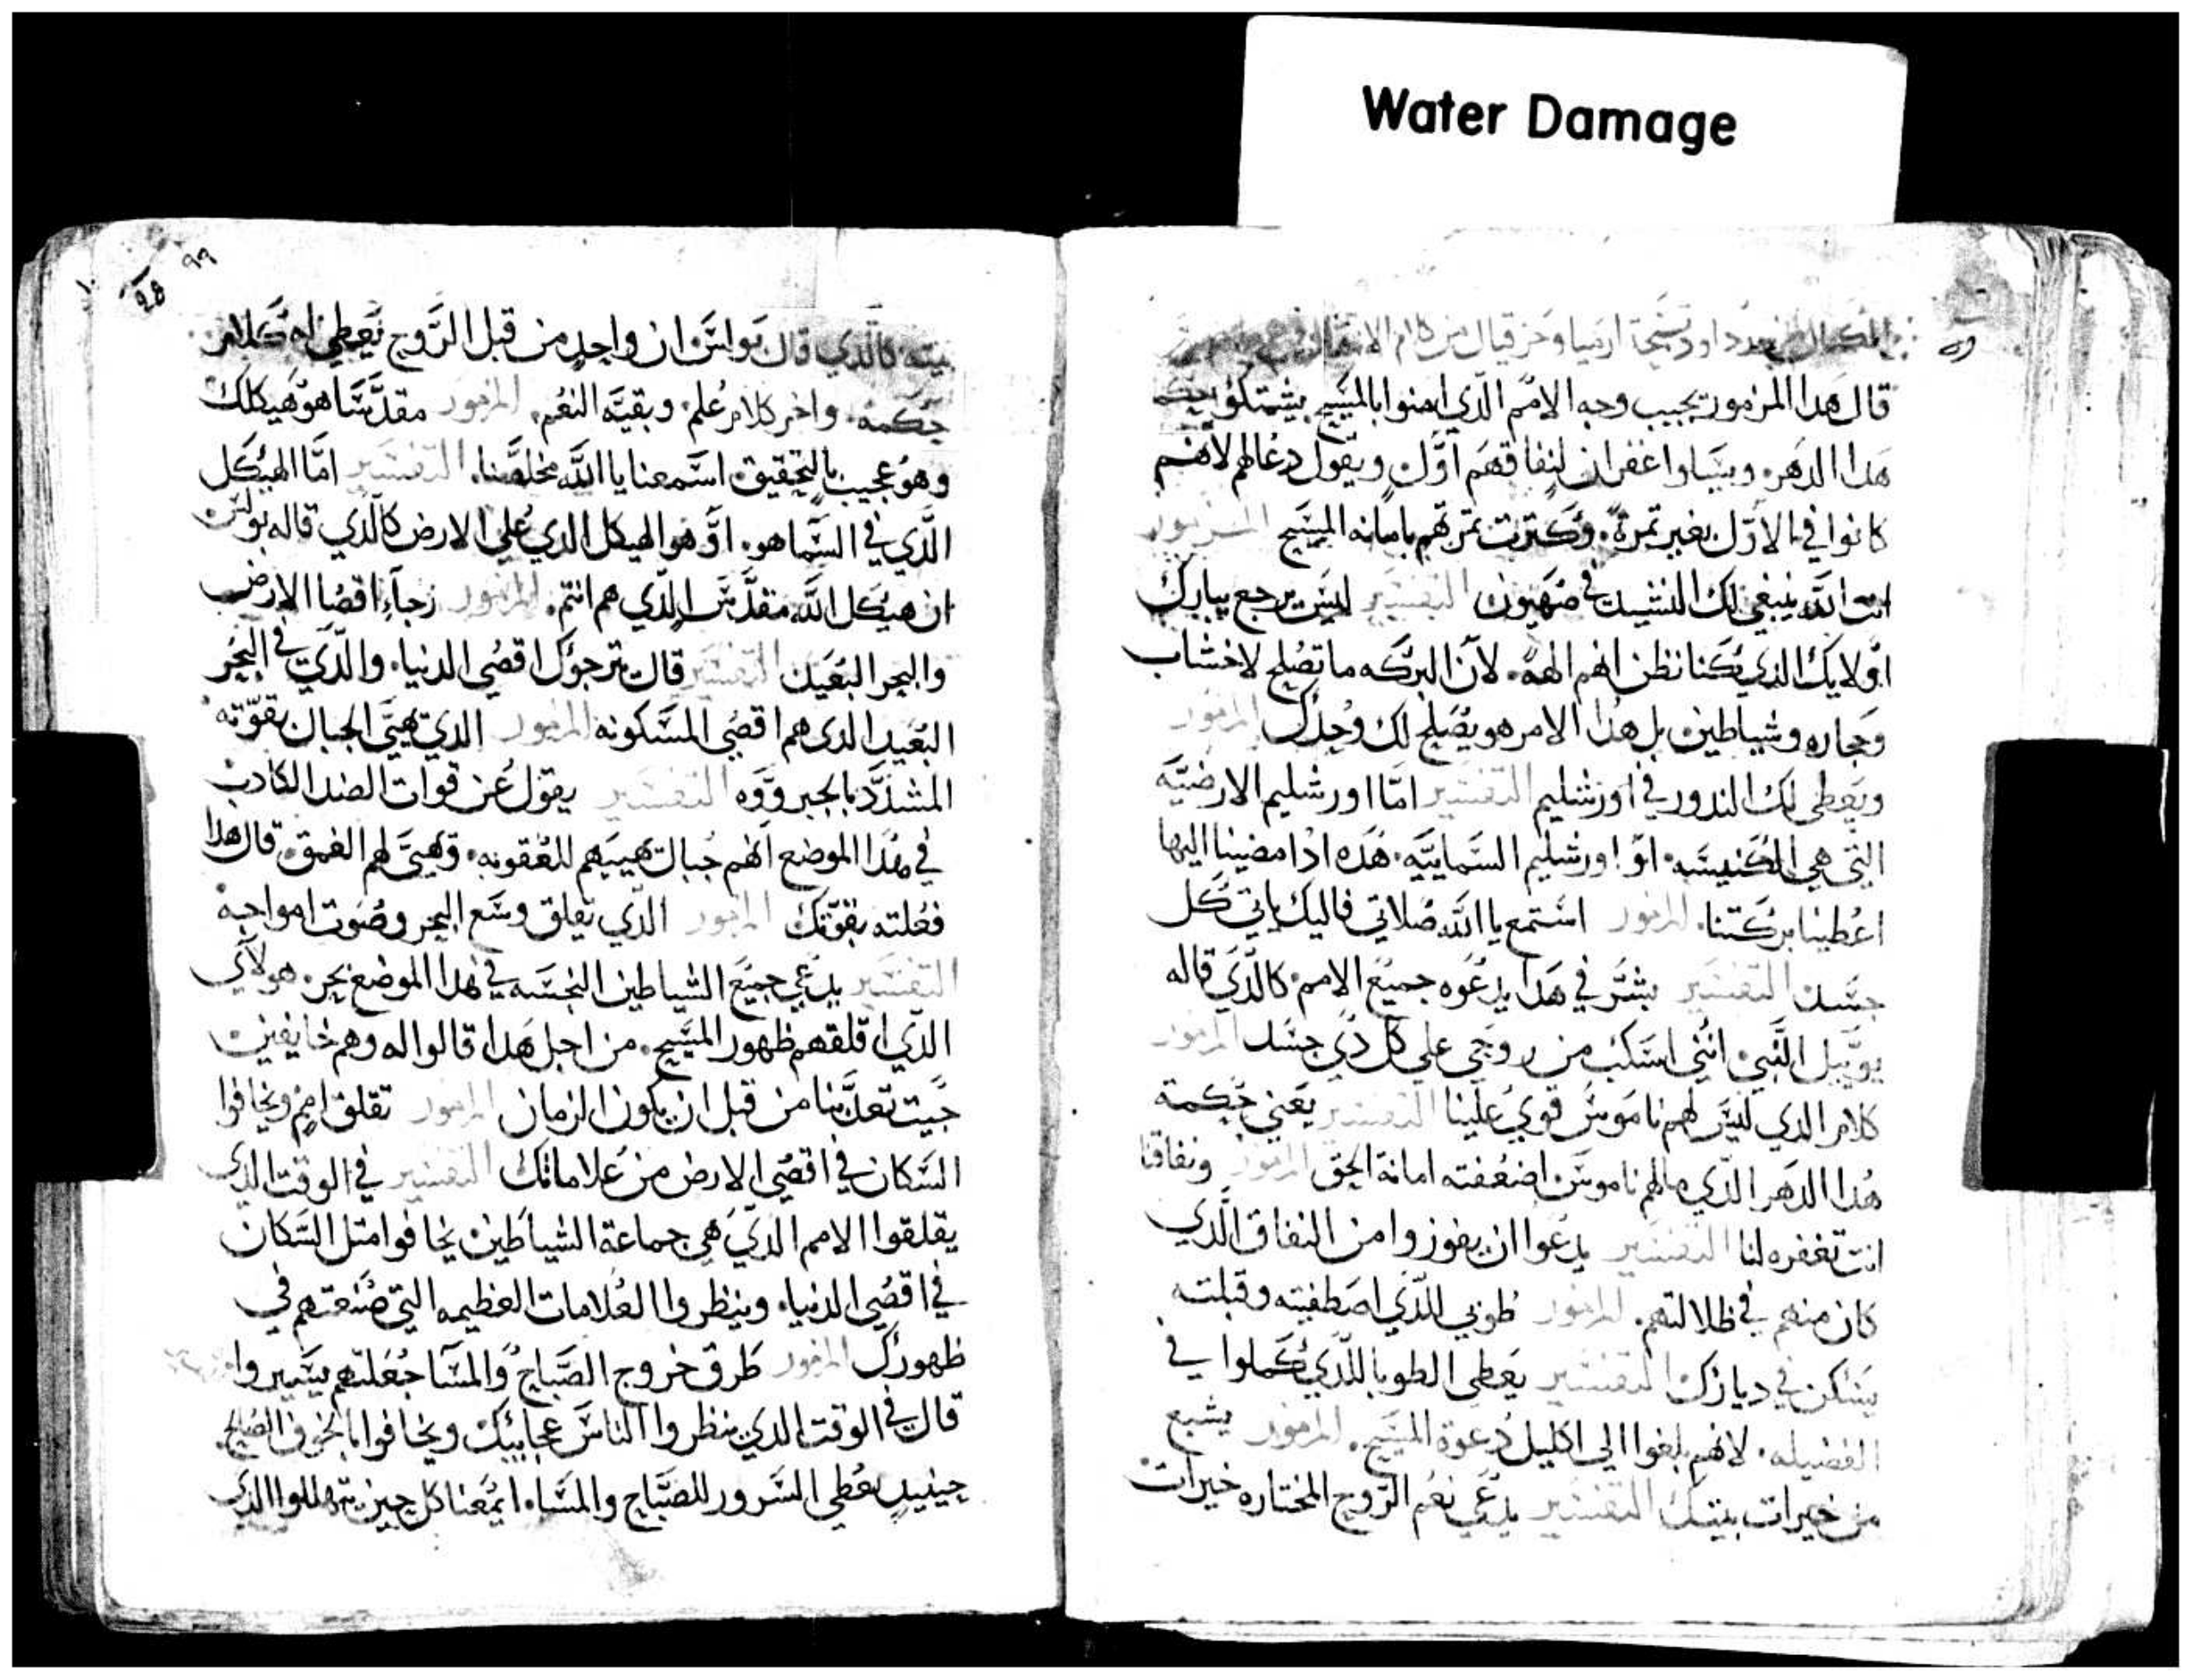 Water Damage
الكمال من بعد داود تسبحة ارميا وحزقيال من كلام الانتقال
قال هدا المزمور يجيب وجه الامم الدي امنوا بالمسيح يشتكوا حكمة
هدا الدهر. ويسالوا غفران لنفاقهم اول. ويقول دعالهم لانهم
كانوا في الاول بغير تمرة. وكترت تمرتهم بامانه المسيح المزمور
انت الله ينبغي لك النشيد في صهيون التفسير ليس يرجع يبارك
اولايك الدي كنا نظن انهم الهه. لان البركه ما تصلح لاخشاب
وحجاره وشياطين بل هدا الامر هو يصلح لك وحدك المزمور
ويعطى لك الندور في اورشليم التفسير امّا اورشليم الارضيّه
التي هي الكنيسه. اوّ اورشليم السّماييّه. هده ادا مضينا اليها
اعطينا بركتنا. المزمور استمع يا الله صلاتي فاليك ياتي كل
جسد التفسير بشّر في هدا يدعوه جميع الامم. كالّدي قاله
يوييل النّبي. انّني اسكب من روحي على كل دي جسد المزمور
كلام الدي ليس لهم ناموس قوي علينا التفسير يعني حكمة
هدا الدهر الدي مالهم ناموس اضعفته امانة الحق المزمور ونفاقنا
انت تغفره لنا التفسير يدعوا ان يفوزوا من النفاق الّدي
كان منهم في ظلالتهم. المزمور طوبي للّدي اصطفيته وقبلته
يسكن في ديارك التفسير يعطي الطوبا للّدي كملوا في
الفضيله. لانهم بلغوا الي اكليل دعوة المسيح. المزمور يشبع
من خيرات بيتك التفسير يدعي نعم الرّوح المختاره خيرات
٩٩
98
بيته كالّدي قال بولس ان واحد من قبل الرّوح يعطي له كلام
حكمة. واخر كلام علم. وبقيّه النعم. المزمور مقدّسا هو هيكلك
وهو عجيب بالتحقيق. اسمعنا يا الله مخلصنا. التفسير امّا الهيكل
الّدي في السّما هو. اوّ هو الهيكل الدي على الارض كالّدي قاله بولس
ان هيكل الله مقدّس الّدي هم انتم. المزمور رجاء اقصا الارض
والبحر البعيد التفسير قال يترجوك اقصى الدنيا. والّدي في البحر
البعيد الدي هم اقصى المسكونه المزمور الدي يهيّي الجبال بقوّته
المشدّد بالجبرووه التفسير يقول عن قوات الضد الكادب
في هدا الموضع انهم جبال يهييهم للعقوبه. وهيّي لهم العمق. قال هدا
فعلته بقوّتك المزمور الّدي يقلق وسع البحر وصوت امواجه
التفسير يدعي جميع الشياطين النجسه في هدا الموضع بحر. هولآي
الدّي اقلقهم ظهور المسيح. من اجل هدا قالوا له وهم خايفين
جيت تعدّبنا من قبل ان يكون الزمان المزمور تقلق امم ويخافوا
السّكان في اقصى الارض من علاماتك التفسير في الوقت الدي
يقلقوا الامم الدّي هي جماعة الشياطين يخافوا متل السّكان
في اقصى الدنيا. وينظروا العلامات العظيمه التي صنعتهم في
ظهورك المزمور طرق خروج الصّباح والمسا جعلتهم يسيروا
قال في الوقت الدي ينظروا الناس عجايبك ويخافوا بالخوف الصالح.
حينيد يعطي السّرور للصّباح والمسا. ايمعنا كل حين يتهللوا الدي